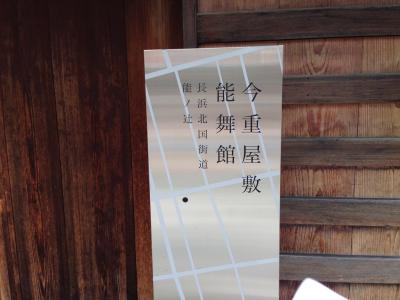 今重屋敷
能舞館
長浜北国街道
能ノ辻